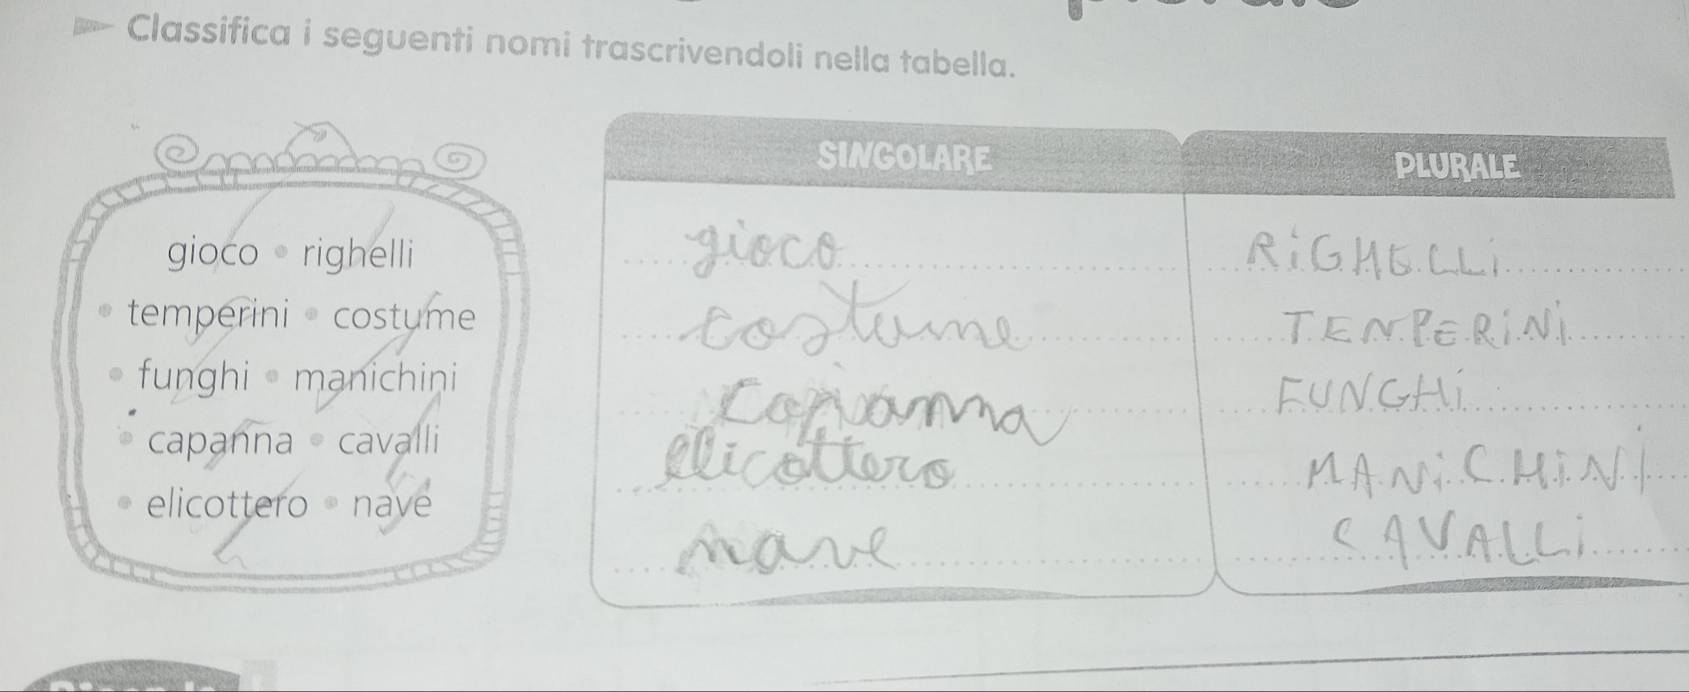 Classifica i seguenti nomi trascrivendoli nella tabella.
gioco • righelli
• temperini • costume
• funghi • manichini
• capanna • cavalli
• elicottero • nave
SINGOLARE PLURALE
gioco RiGHELLi
costume TENPERiNi
capanna FUNGHi
elicottero MANiCHiNI
nave CAVALLi